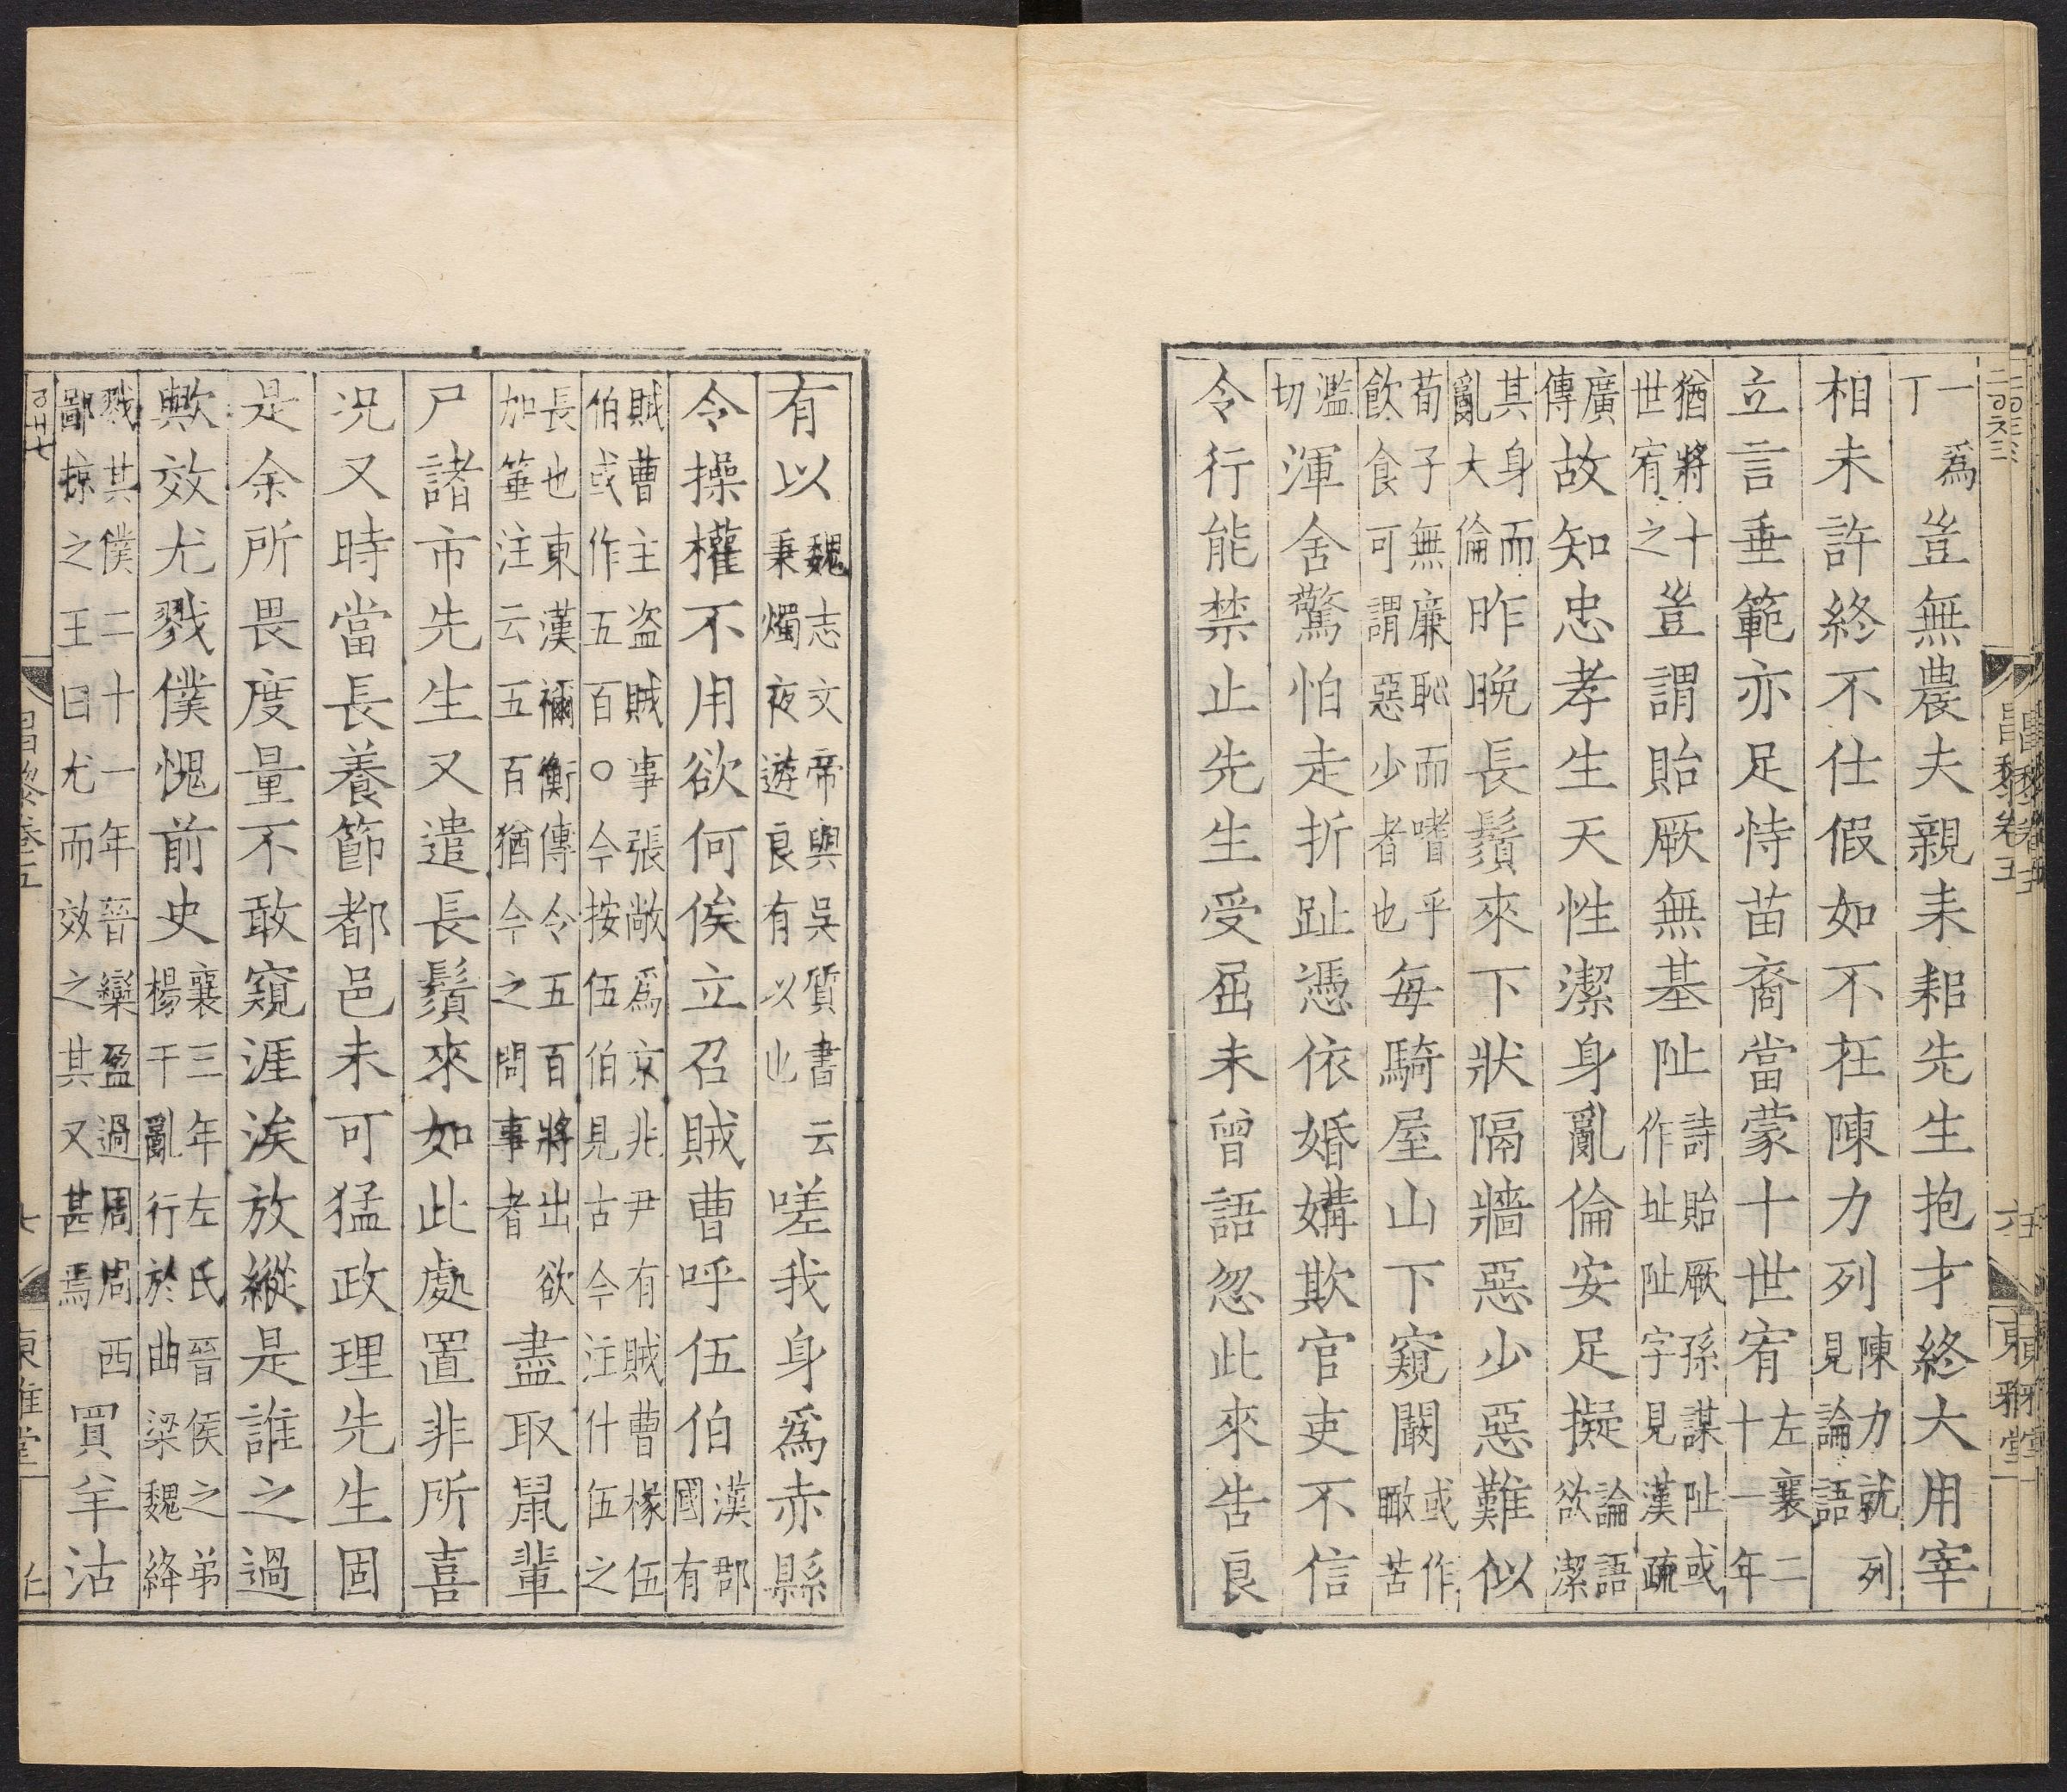 昌黎卷五 六 東雅堂
一爲
丁
豈無農夫親耒耜先生抱才終大用宰
相未許終不仕假如不在陳力列
陳力就列
見論語
立言垂範亦足恃苗裔當蒙十世宥
左襄二
十一年
猶將十
世宥之
豈謂貽厥無基阯
詩貽厥孫謀阯或
作址阯字見漢疏
廣
傳
故知忠孝生天性潔身亂倫安足擬
論語
欲潔
其身而
亂大倫
昨晚長鬚來下狀隔牆惡少惡難似
荀子無廉恥而嗜乎
飲食可謂惡少者也
每騎屋山下窺闞
或作
瞰苦
濫
切
渾舍驚怕走折趾憑依婚媾欺官吏不信
令行能禁止先生受屈未曾語忽此來告良
有以
魏志文帝與吳質書云
秉燭夜遊良有以也
嗟我身爲赤縣
令操權不用欲何俟立召賊曹呼伍伯
漢郡
國有
賊曹主盗賊事張敞爲京兆尹有賊曹椽伍
伯或作五百○今按伍伯見古今注什伍之
長也東漢禰衡傳令五百將出欲
加箠注云五百猶今之問事者
盡取鼠輩
尸諸市先生又遣長鬚來如此處置非所喜
况又時當長養節都邑未可猛政理先生固
是余所畏度量不敢窺涯涘放縱是誰之過
歟效尤戮僕愧前史
襄三年左氏晉侯之弟
楊干亂行於曲梁魏絳
戮其僕二十一年晉欒盈過周周西
鄙掠之王曰尤而效之其又甚焉
買羊沽
昌黎卷五 七 東雅堂